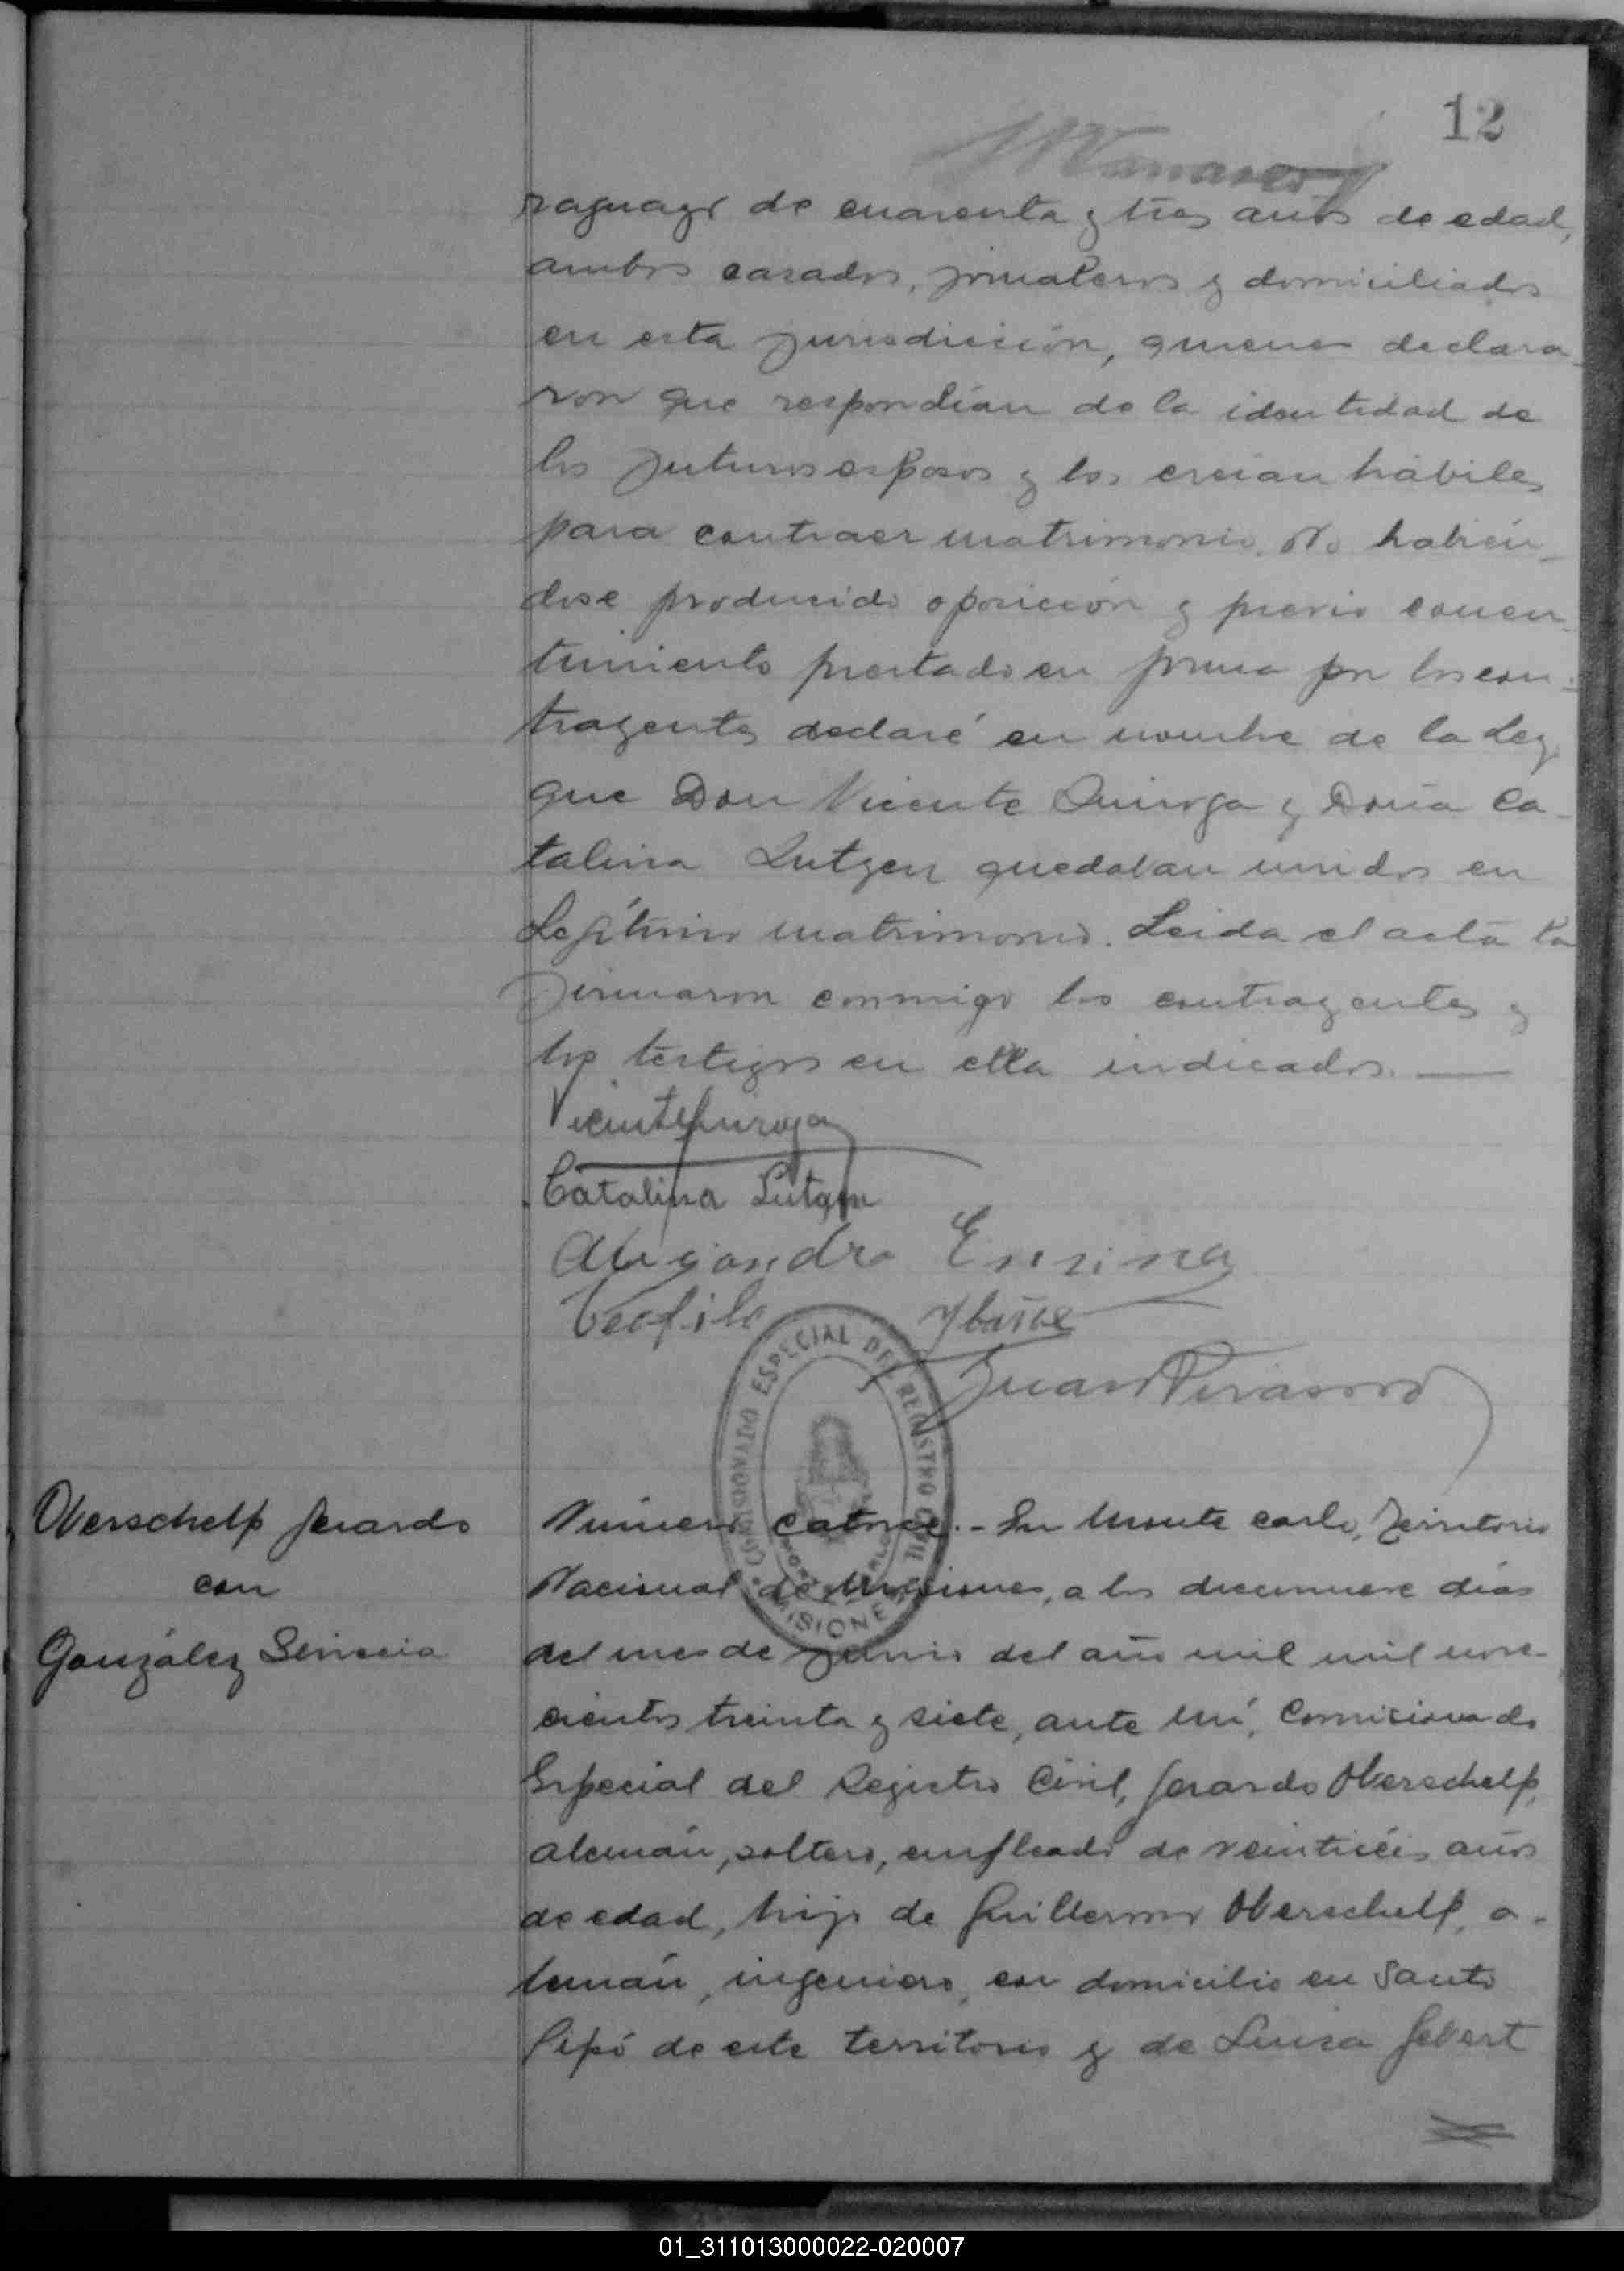 12
raguayo de cuarenta y tres años de edad,
ambos casados, jornaleros y domiciliados
en esta jurisdicción, quienes declara
ron que respondían de la identidad de
los futuros esposos y los creian hábiles
para contraer matrimonio. No habién
dose producido oposición y previo concen
timiento prestado en forma por los con
trayentes declaré en nombre de la Ley
que Don Vicente Quiroga y Doña Ca-
talina Lutzen quedaban unidos en
Legítimo matrimonio. Leida el acta la
firmaron conmigo los contrayentes y
los testigos en ella indicados. —
Vicente Quiroga
Catalina Lutzen
Alejandro Ensina
Teofilo Ybañe
COMISIONADO ESPECIAL DEL REGISTRO CIVIL
MISIONES
Oberschelp Gerardo
con
González
Número catorce.- En Monte carlo, Territorio
Nacional de Misiones, a los diecinueve días
del mes de Junio del año mil mil nove-
cientos treinta y siete, ante mí, Comisionado
Especial del Registro Civil, Gerardo Oberschelp,
alemán, soltero, empleado de veintiséis años
de edad, hijo de Guillermo Oberschelp, a-
lemán, ingeniero, con domicilio en Santo
Pipó de este territorio y de Luisa Gebert
01_311013000022-020007